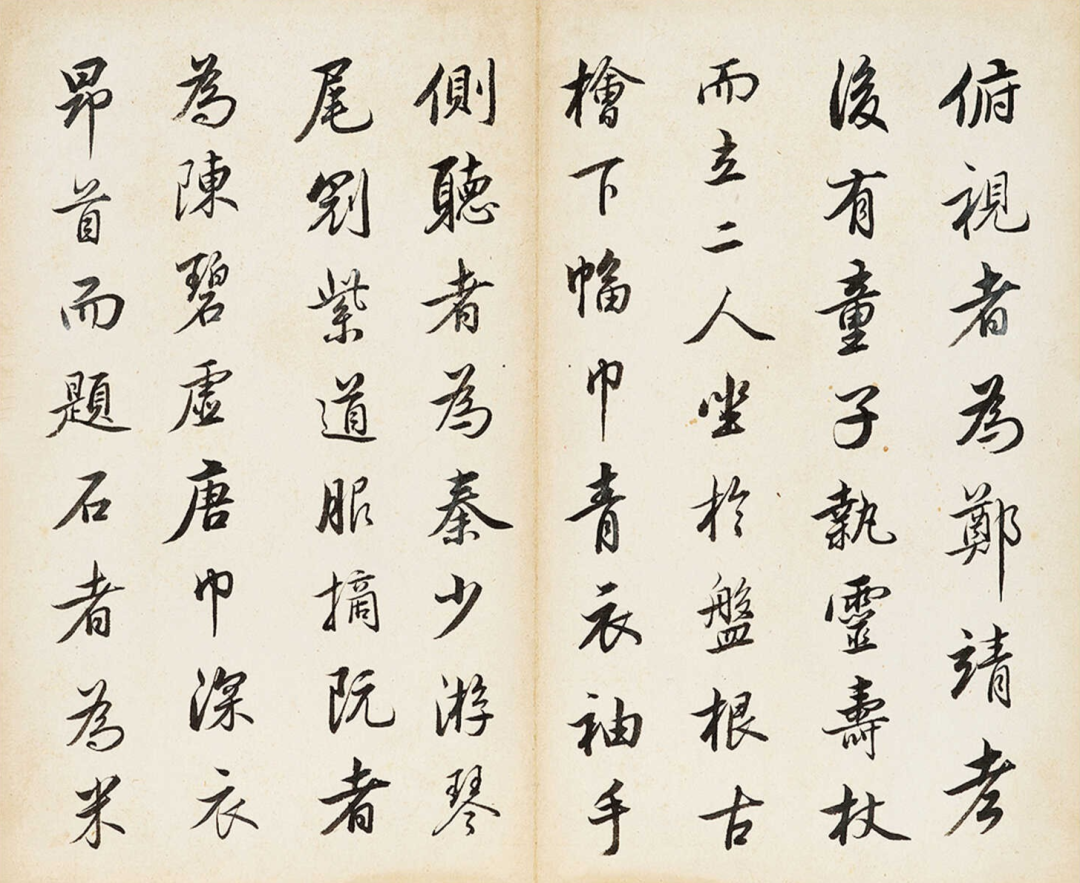 俯視者為鄭靖老
後有童子執靈壽杖
而立二人坐於盤根古
檜下幅巾青衣袖手
側聽者為秦少游琴
尾劉紫道服摘阮者
為陳碧虛唐巾深衣
昂首而題石者為米